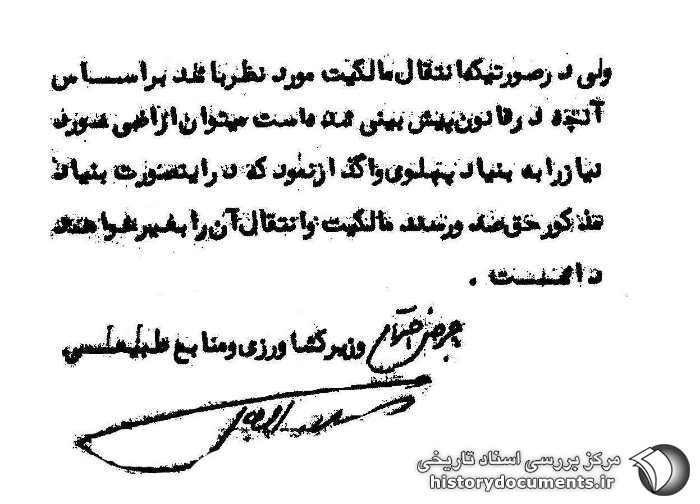 ولی در صورتیکه انتقال مالکیت مورد نظر باشد بر اساس
آنچه در قانون پیش بینی شده است میتوان اراضی مورد
نیاز را به بنیاد پهلوی واگذار نمود که در اینصورت بنیاد
مذکور حق صدور سند مالکیت و انتقال آن را بغیر خواهند
داشت .
وزیر کشاورزی و منابع طبیعی
مرکز بررسی اسناد تاریخی
historydocuments.ir